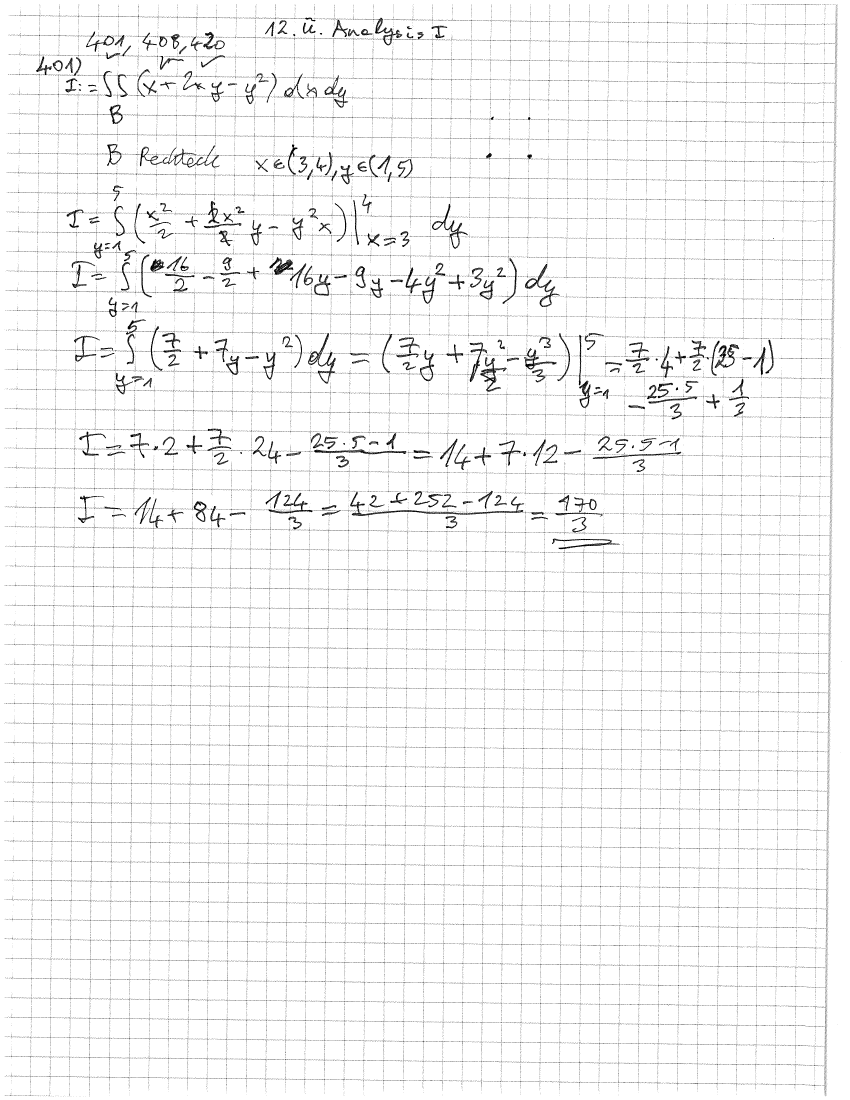 12. Ü. Analysis I
401, 408, 420
401)
I := ∫∫ (x + 2xy - y²) dx dy
B
B Rechteck x ∈ (3,4), y ∈ (1,5)
I = ∫_{y=1}^{5} (x²/2 + 2x²/2 y - y²x) |_{x=3}^{4} dy
I = ∫_{y=1}^{5} (16/2 - 9/2 + 16y - 9y - 4y² + 3y²) dy
I = ∫_{y=1}^{5} (7/2 + 7y - y²) dy = (7/2 y + 7 y²/2 - y³/3) |_{y=1}^{5} = 7/2 · 4 + 7/2 · (25 - 1)
- 25·5/3 + 1/3
I = 7·2 + 7/2 · 24 - (25·5-1)/3 = 14 + 7·12 - (25·5-1)/3
I = 14 + 84 - 124/3 = (42 + 252 - 124)/3 = 170/3